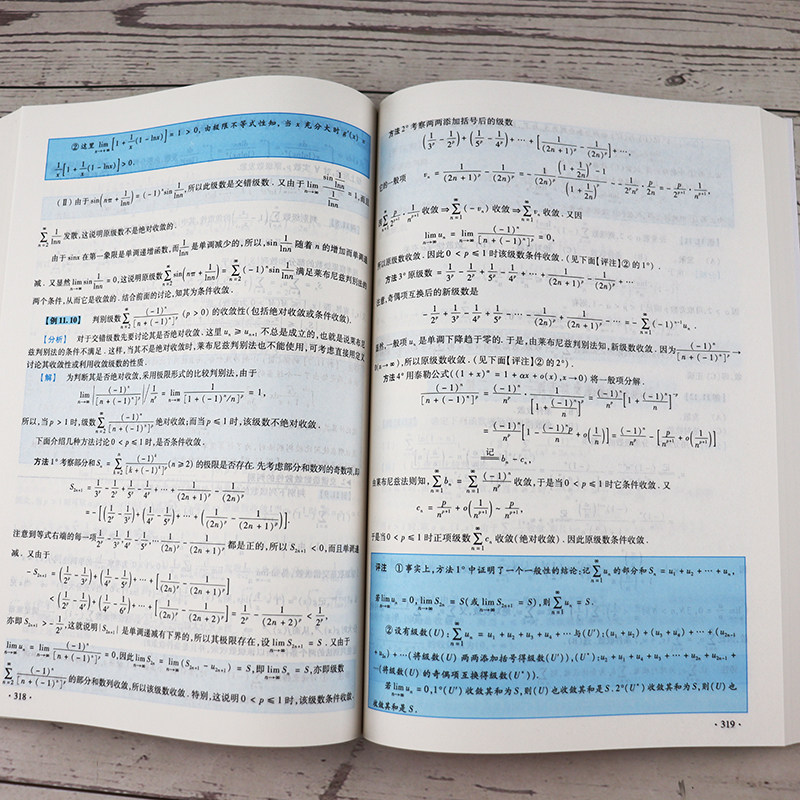 ② 这里 lim_{n→∞}[1+1/x(1-lnx)]=1>0, 由极限不等式性知, 当 x 充分大时 g'(x)=
1/x[1+1/x(1-lnx)]>0.
(Ⅱ) 由于 sin(nπ+1/lnn)=(-1)^n sin 1/lnn, 所以此级数是交错级数. 又由于 lim_{n→∞} (sin 1/lnn)/(1/lnn)=1, 而
∑_{n=2}^∞ 1/lnn 发散, 这说明原级数不是绝对收敛的.
由于 sinx 在第一象限是单调递增函数, 而 1/lnn 是单调减少的, 所以, sin 1/lnn 随着 n 的增加而单调递
减. 又显然 lim_{n→∞} sin 1/lnn=0, 这说明原级数 ∑_{n=2}^∞ sin(nπ+1/lnn)=∑_{n=2}^∞(-1)^n sin 1/lnn 满足莱布尼兹判别法的
两个条件, 从而它是收敛的. 结合前面的讨论, 知其为条件收敛.
【例11.10】 判别级数 ∑_{n=2}^∞ (-1)^n/[n+(-1)^n]^p (p>0) 的收敛性(包括绝对收敛或条件收敛).
【分析】 对于交错级数先要讨论其是否绝对收敛. 这里 u_n ≥ u_{n+1} 不总是成立的, 也就是说莱布尼
兹判别法的条件不满足. 这样, 当其不是绝对收敛时, 莱布尼兹判别法也不能使用, 可考虑直接用定义
讨论其收敛性或利用收敛级数的性质.
【解】 为判断其是否绝对收敛, 采用极限形式的比较判别法, 由于
lim_{n→∞} |(-1)^n/[n+(-1)^n]^p| / 1/n^p = lim_{n→∞} 1/[1+(-1)^n/n]^p = 1,
所以, 当 p>1 时, 级数 ∑_{n=2}^∞ (-1)^n/[n+(-1)^n]^p 绝对收敛; 而当 p≤1 时, 该级数不绝对收敛.
下面介绍几种方法讨论 0<p≤1 时, 是否条件收敛.
方法1° 考察部分和 S_n=∑_{k=2}^n (-1)^k/[k+(-1)^k]^p (n≥2) 的极限是否存在. 先考虑部分和数列的奇数项, 即
S_{2n+1}=1/3^p-1/2^p+1/5^p-1/4^p+⋯+1/(2n+1)^p-1/(2n)^p
=-[(1/2^p-1/3^p)+(1/4^p-1/5^p)+⋯+(1/(2n)^p-1/(2n+1)^p)].
注意到等式右端的每一项 1/2^p-1/3^p, 1/4^p-1/5^p, ⋯ 1/(2n)^p-1/(2n+1)^p 都是正的, 所以 S_{2n+1}<0, 而且单调递
减. 又由于
-S_{2n+1}=(1/2^p-1/3^p)+(1/4^p-1/5^p)+⋯+[1/(2n)^p-1/(2n+1)^p]
<(1/2^p-1/4^p)+(1/4^p-1/6^p)+⋯+[1/(2n)^p-1/(2n+2)^p]=1/2^p-1/(2n+2)^p<1/2^p,
亦即 S_{2n+1}>-1/2^p, 这就说明 {S_{2n+1}} 是单调递减有下界的, 所以其极限存在, 设 lim_{n→∞} S_{2n+1}=S. 又由于
lim_{n→∞} u_n=lim_{n→∞} (-1)^n/[n+(-1)^n]^p=0, 因此 lim_{n→∞} S_{2n}=lim_{n→∞}(S_{2n+1}-u_{2n+1})=S, 即 lim_{n→∞} S_n=S, 亦即级数
∑_{n=2}^∞ (-1)^n/[n+(-1)^n]^p 的部分和数列收敛, 所以该级数收敛. 特别, 这说明 0<p≤1 时, 该级数条件收敛.
·318·
方法2° 考察两两添加括号后的级数
(1/3^p-1/2^p)+(1/5^p-1/4^p)+⋯+[1/(2n+1)^p-1/(2n)^p]+⋯,
它的一般项 v_n=1/(2n+1)^p-1/(2n)^p=1/(2n)^p · (1-(1+1/2n)^p)/(1+1/2n)^p ~ -1/2^p n^p · p/2n=-p/2^{p+1} · 1/n^{p+1},
∑_{n=1}^∞ p/2^{p+1} · 1/n^{p+1} 收敛⇒∑_{n=1}^∞(-v_n) 收敛⇒∑_{n=1}^∞ v_n 收敛. 又因
lim_{n→∞} u_n=lim_{n→∞} (-1)^n/[n+(-1)^n]^p=0,
所以原级数收敛. 因此 0<p≤1 时该级数条件收敛. (见下面【评注】② 的 1°).
方法3° 原级数=1/3^p-1/2^p+1/5^p-1/4^p+⋯+1/(2n+1)^p-1/(2n)^p+⋯.
注意, 奇偶项互换后的新级数是
-1/2^p+1/3^p-1/4^p+1/5^p+⋯-1/(2n)^p+1/(2n+1)^p-⋯=-∑(-1)^{n-1}u_n.
显然, 一般项 u_n 是单调下降趋于零的. 于是, 由莱布尼兹判别法知, 新级数收敛. 因为 (-1)^n/[n+(-1)^n]^p→
0(n→∞), 所以原级数收敛. (见下面【评注】② 的 2°).
方法4° 用泰勒公式((1+x)^α=1+αx+o(x), x→0) 将一般项分解.
(-1)^n/[n+(-1)^n]^p=(-1)^n/n^p · 1/[1+(-1)^n/n]^p=(-1)^n/n^p[1+(-1)^n/n]^{-p}
=(-1)^n/n^p[1-(-1)^n p/n+o(1/n)]=(-1)^n/n^p-[p/n^{p+1}+o(1/n^{p+1})]
记 b_n-c_n.
由莱布尼兹法则知, ∑_{n=1}^∞ b_n=∑_{n=1}^∞ (-1)^n/n^p 收敛, 于是当 0<p≤1 时它条件收敛. 又
c_n=p/n^{p+1}+o(1/n^{p+1})~p/n^{p+1},
于是当 0<p≤1 时正项级数 ∑_{n=1}^∞ c_n 收敛(绝对收敛). 因此原级数条件收敛.
评注 ① 事实上, 方法1° 中证明了一个一般性的结论: 记 ∑_{n=1}^∞ u_n 的部分和 S_n=u_1+u_2+⋯+u_n,
若 lim_{n→∞} u_n=0, lim_{n→∞} S_{2n}=S(或 lim_{n→∞} S_{2n+1}=S), 则 ∑_{n=1}^∞ u_n=S.
② 设有级数(U): ∑_{n=1}^∞ u_n=u_1+u_2+u_3+u_4+⋯ 与(U'): (u_1+u_2)+(u_3+u_4)+⋯+(u_{2n-1}
+u_{2n})+⋯(将级数(U) 两两添加括号得级数(U')), (U''): u_2+u_1+u_4+u_3+⋯+u_{2n}+u_{2n-1}+
⋯(将级数(U) 的奇偶项互换得级数(U'')).
若 lim_{n→∞} u_n=0, 1°(U') 收敛其和为 S, 则(U) 也收敛其和是 S. 2°(U'') 收敛其和为 S, 则(U) 也
收敛其和是 S.
·319·